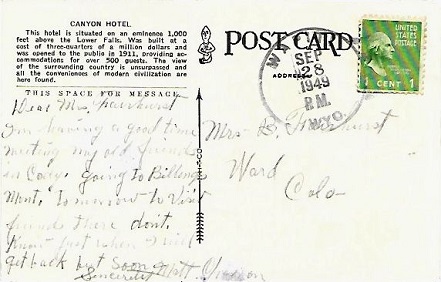 CANYON HOTEL
This hotel is situated on an eminence 1,000
feet above the Lower Falls. Was built at a
cost of three-quarters of a million dollars and
was opened to the public in 1911, providing ac-
commodations for over 500 guests. The view
of the surrounding country is unsurpassed and
all the conveniences of modern civilization are
here found.
THIS SPACE FOR MESSAGE
Dear Mrs. Fairhurst
I'm having a good time
meeting my old friends
in Cody. going to Billings
Mont. Tomorrow to Visit
friends there don't
Know just when I will
get back but soon
Sincerely Matt
POST CARD
ADDRESS
SEP
28
1949
P.M.
WYO.
UNITED
STATES
POSTAGE
CENT 1
Mrs B. Fairhurst
Ward
Colo